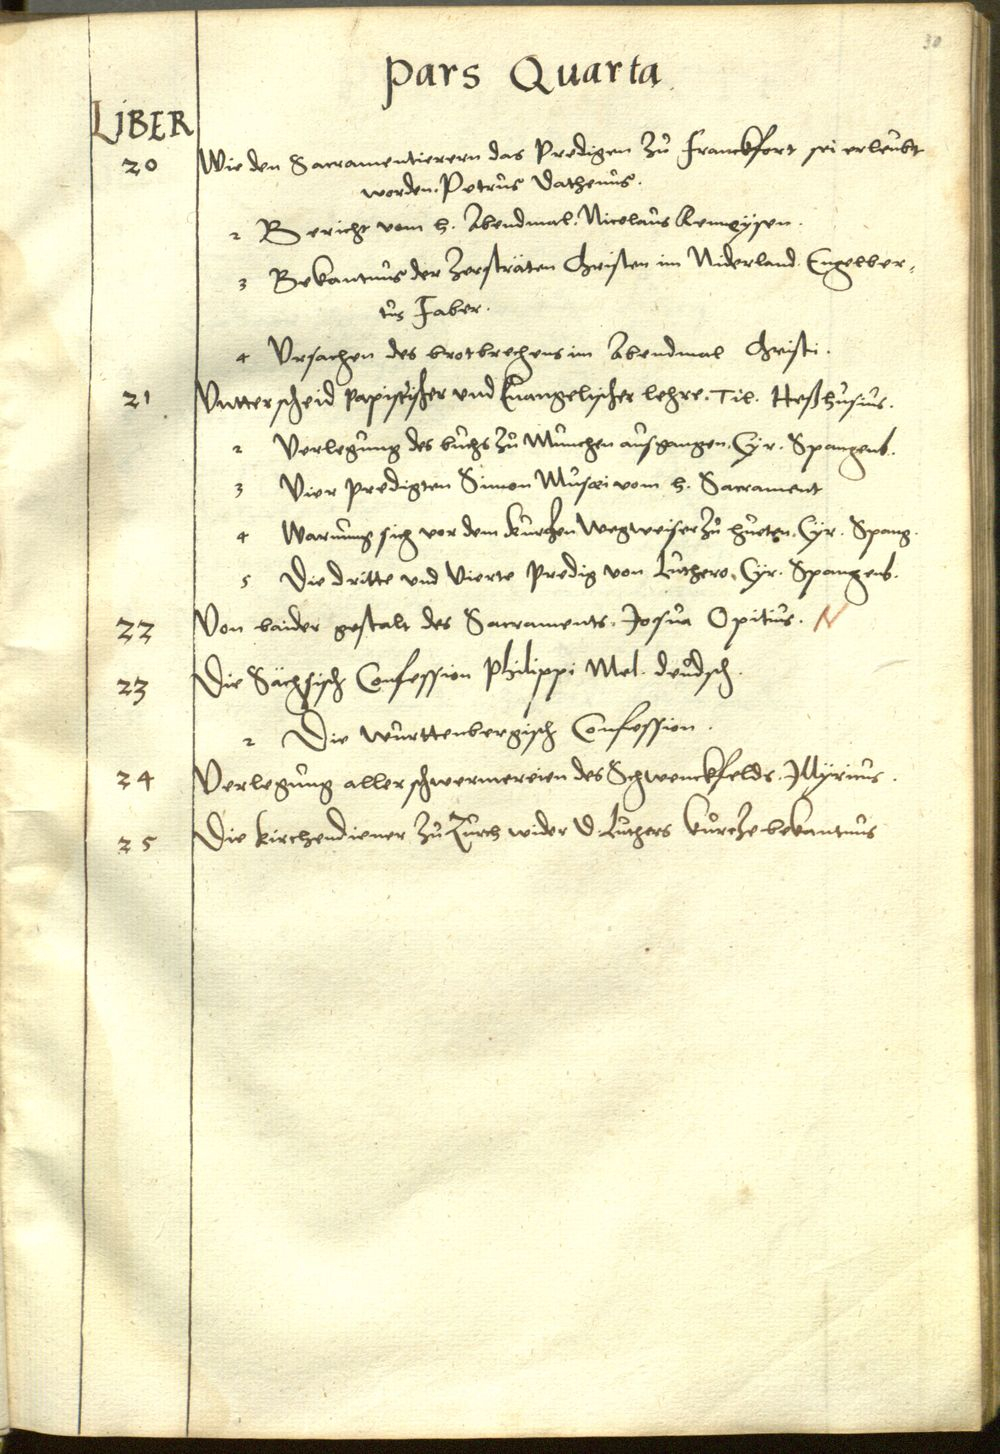 30
Pars Quarta
LIBER
20 Wie den Sacramentierern das Predigen zu Franckfort sei erleubt
worden. Petrus Dathenus.
2 Bericht vom h. Abendmal. Nicolaus
3 Bekantnus der Zersträten Christen im Niderland. Engelber,
tus Faber.
4 Vrsachen des brotbrechens im Abendmal Christi.
21 Vntterscheid Papistischer vnd Euangelischer lehre. Til. Heßhusius.
2 Verlegung des buchs zu Munchen ausgangen. Cyr. Spangenb.
3 Vier Predigten Simon Musæi vom h. Sacrament
4 Warnung sich vor dem kurtzen Wegweiser zu hueten. Cyr. Spang.
5 Die dritte vnd Vierte Predig von Luthero. Cyr. Spangenb.
22 Von baider gestalt des Sacraments. Josua Opitius. N
23 Die Sächsisch Confession Philippi Mel. deudsch.
2 Die Wurttenbergisch Confession.
24 Verlegung aller schwermereien des Schwenckfelds. Jllyricus.
25 Die kirchendiener zu Zurch wider D. Luthers kurtze bekantnus